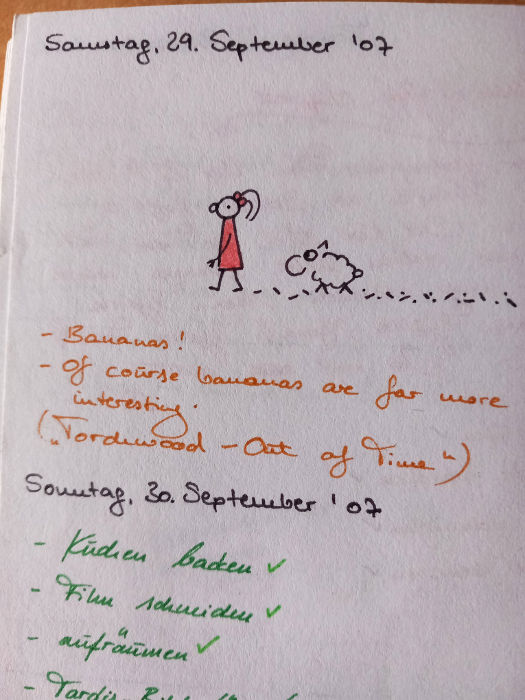 Samstag, 29. September '07
- Bananas!
- Of course bananas are far more
interesting.
("Torchwood - Out of Time")
Sonntag, 30. September '07
- Kuchen backen ✓
- Film schneiden ✓
- aufräumen ✓
- Tardis-